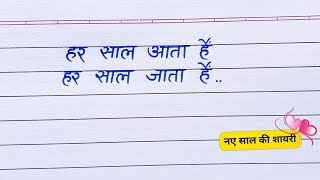 हर साल आता हैं
हर साल जाता हैं..
नए साल की शायरी